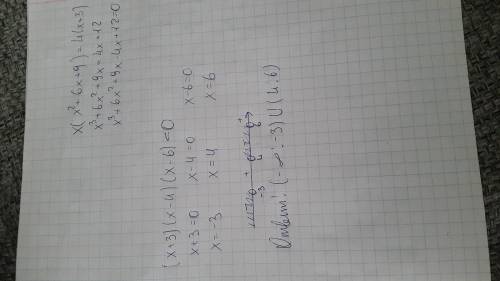 x(x²+6x+9)=4(x+3)
x³+6x²+9x=4x+12
x³+6x²+9x-4x+12=0
(x+3)(x-4)(x-6)<0
x+3=0 x-4=0 x-6=0
x=-3 x=4 x=6
- + - +
-3 4 6
Ответ: (-∞;-3)U(4;6)